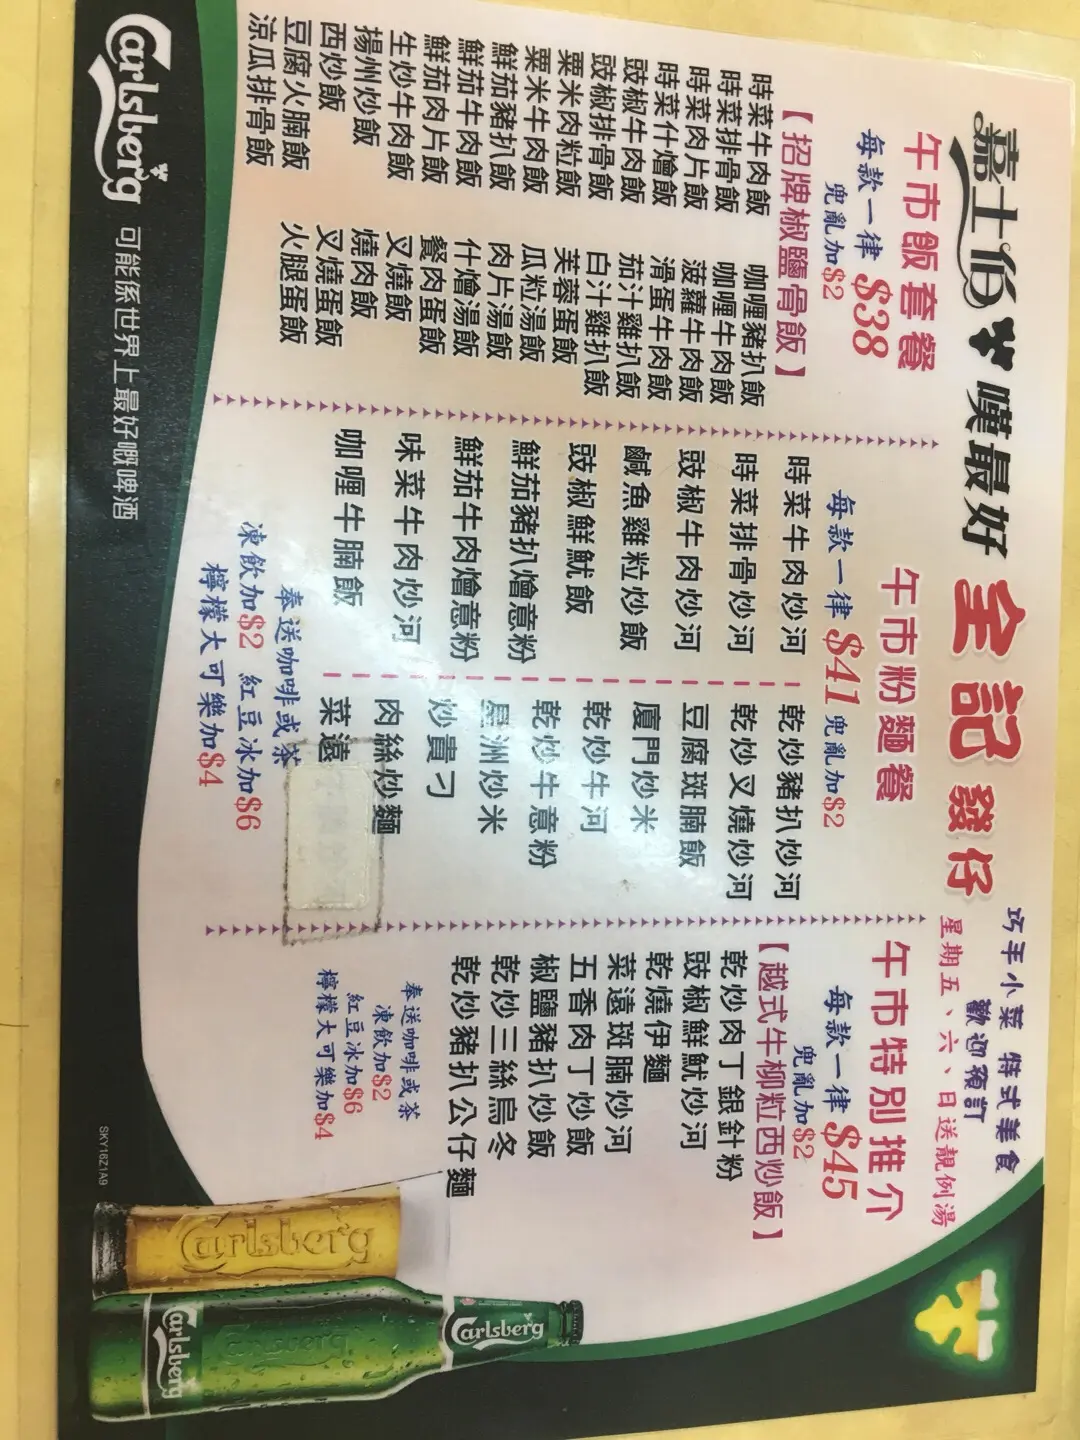 嘉士伯 嘆最好 全記發仔
巧手小菜 特式美食
歡迎預訂
星期五、六、日送靚例湯
午市飯套餐
每款一律 $38
兜亂加$2
【招牌椒鹽骨飯】
時菜牛肉飯 咖喱豬扒飯
時菜排骨飯 咖喱牛肉飯
時菜肉片飯 菠蘿牛肉飯
時菜什燴飯 滑蛋牛肉飯
豉椒牛肉飯 茄汁雞扒飯
豉椒排骨飯 白汁雞扒飯
粟米肉粒飯 芙蓉蛋飯
粟米牛肉飯 瓜粒湯飯
鮮茄豬扒飯 肉片湯飯
鮮茄牛肉飯 什燴湯飯
鮮茄肉片飯 餐肉蛋飯
生炒牛肉飯 叉燒飯
揚州炒飯 燒肉飯
西炒飯 叉燒蛋飯
豆腐火腩飯 火腿蛋飯
涼瓜排骨飯
午市粉麵餐
每款一律 $41 兜亂加$2
時菜牛肉炒河 乾炒豬扒炒河
時菜排骨炒河 乾炒叉燒炒河
豉椒牛肉炒河 豆腐斑腩飯
鹹魚雞粒炒飯 廈門炒米
豉椒鮮魷飯 乾炒牛河
鮮茄豬扒燴意粉 乾炒牛意粉
鮮茄牛肉燴意粉 星洲炒米
味菜牛肉炒河 炒貴刁
咖喱牛腩飯 肉絲炒麵
菜遠
奉送咖啡或茶
凍飲加$2 紅豆冰加$6
檸檬大可樂加$4
午市特別推介
每款一律 $45
兜亂加$2
【越式牛柳粒西炒飯】
乾炒肉丁銀針粉
豉椒鮮魷炒河
乾燒伊麵
菜遠斑腩炒河
五香肉丁炒飯
椒鹽豬扒炒飯
乾炒三絲烏冬
乾炒豬扒公仔麵
奉送咖啡或茶
凍飲加$2
紅豆冰加$6
檸檬大可樂加$4
Carlsberg 可能係世界上最好嘅啤酒
SKY16Z1A9
Carlsberg
Carlsberg
Carlsberg